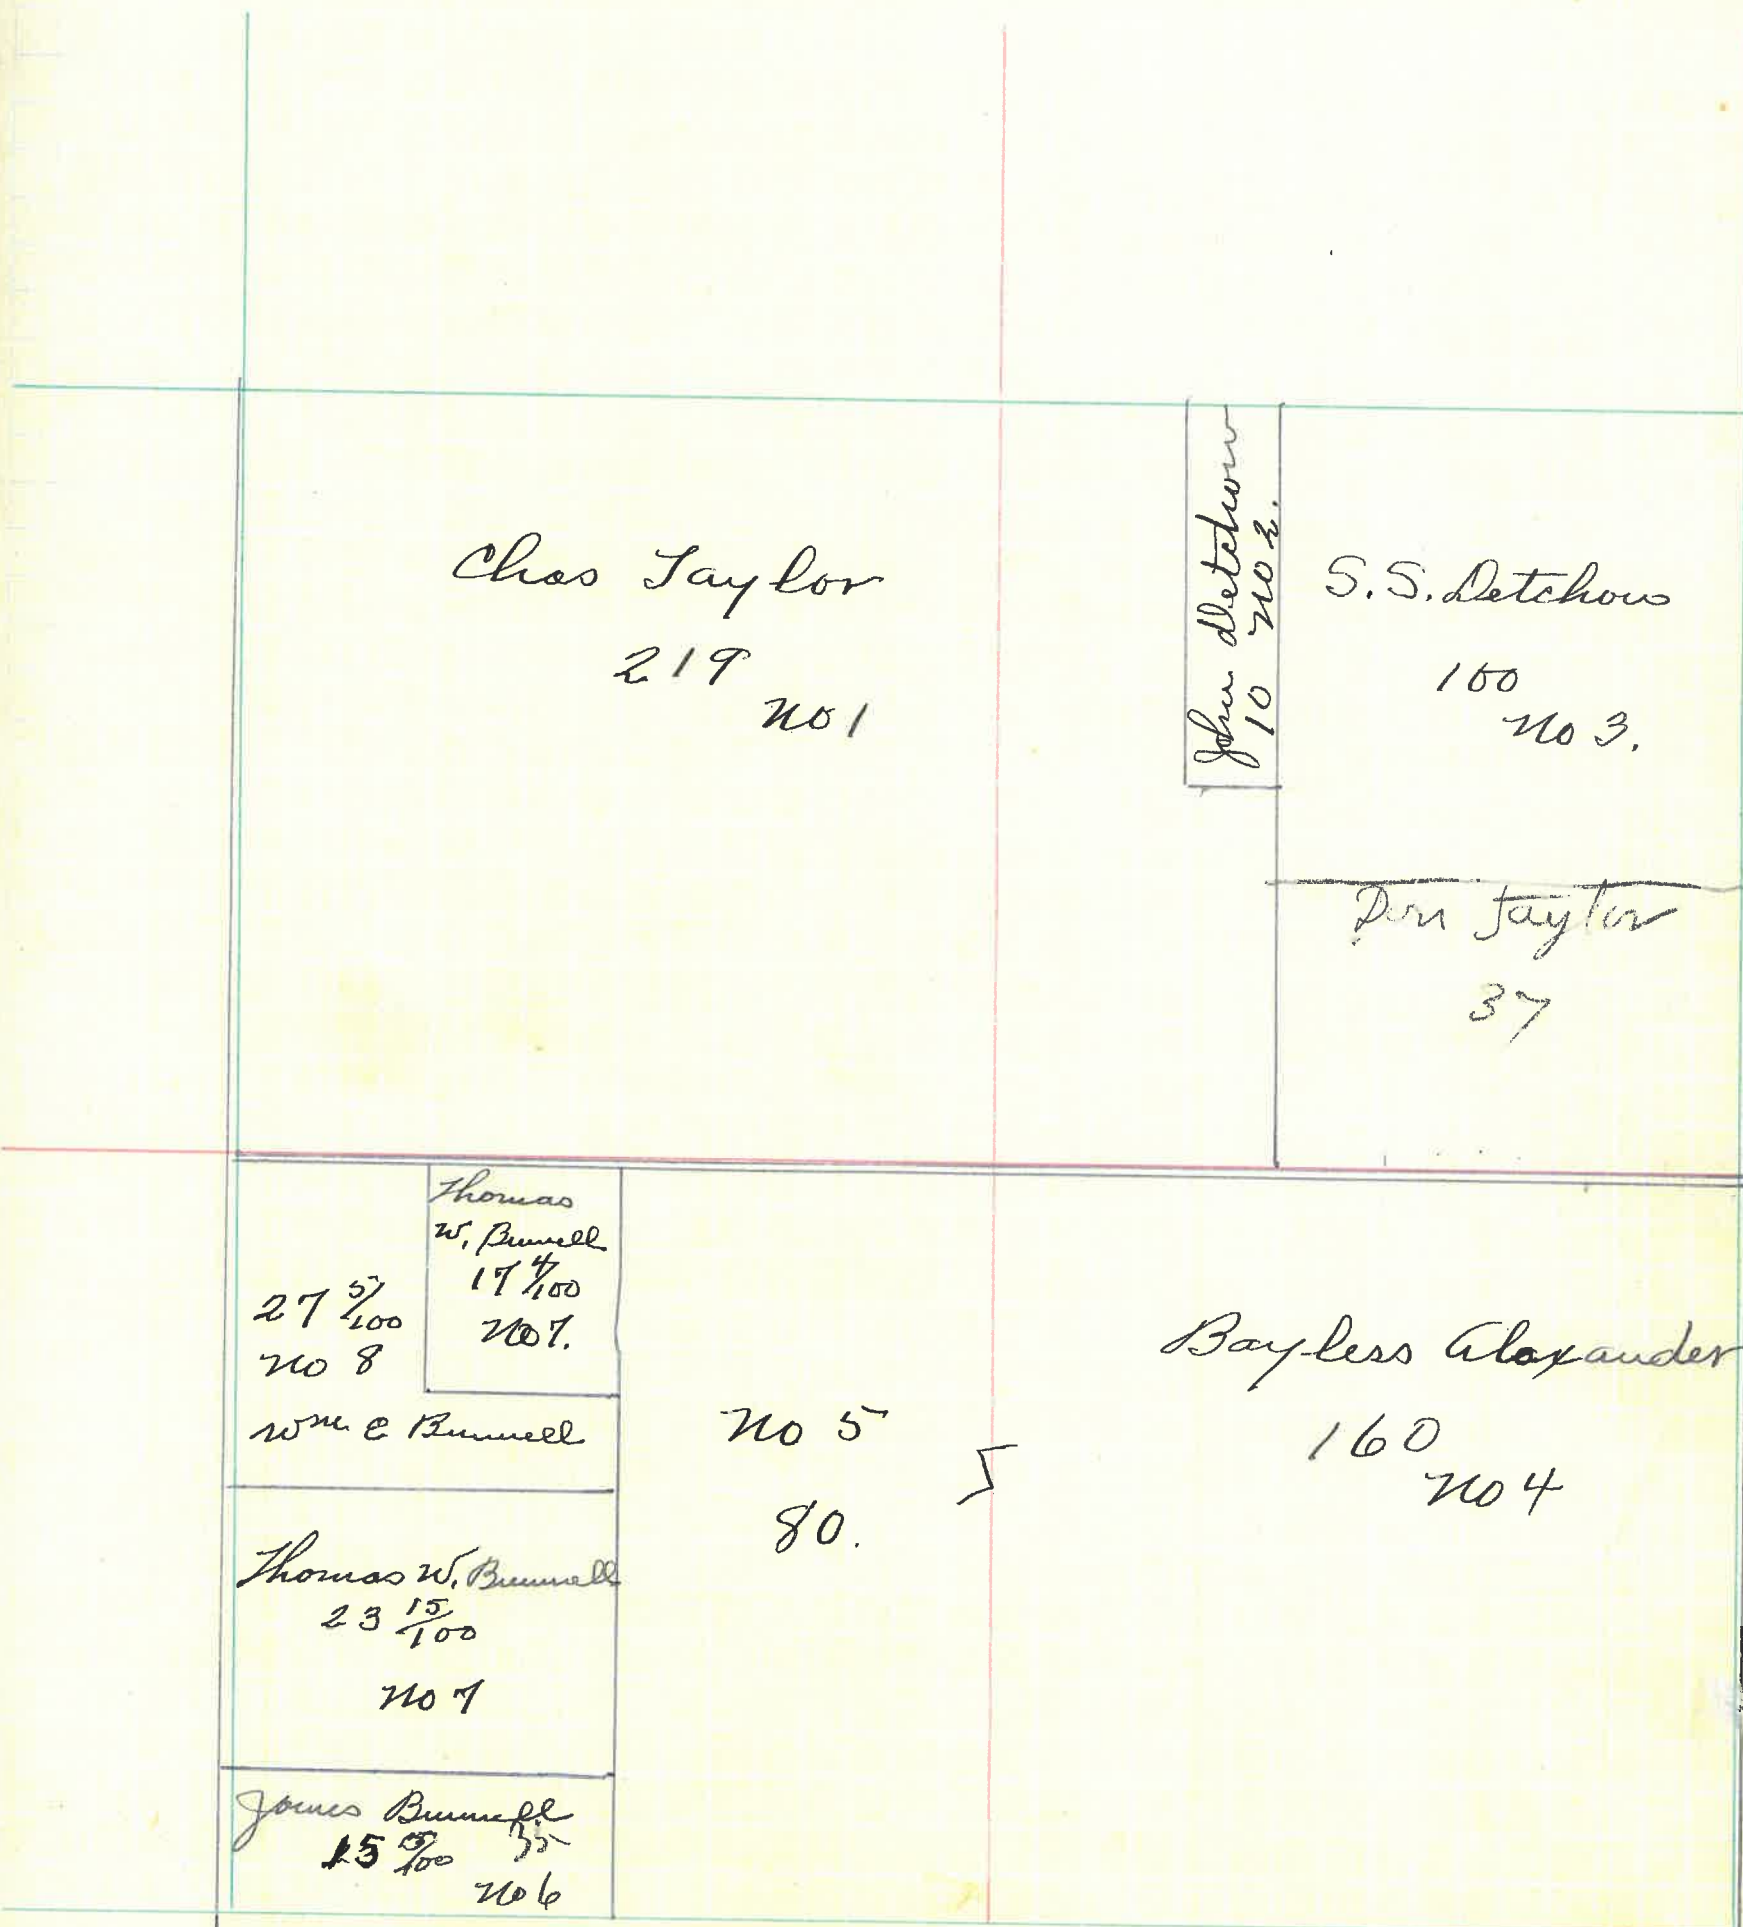 Chas Taylor
219
No 1
John Detchon
10 No 2.
S. S. Detchon
100
No 3.
Taylor
37
Thomas
W. Bunnell
17 4/100
No 7.
27 5/100
No 8
Wm C Bunnell
No 5
80.
Bayless Alexander
160
No 4
Thomas W. Bunnell
23 15/100
No 7
James Bunnell
15 /100 35
No 6